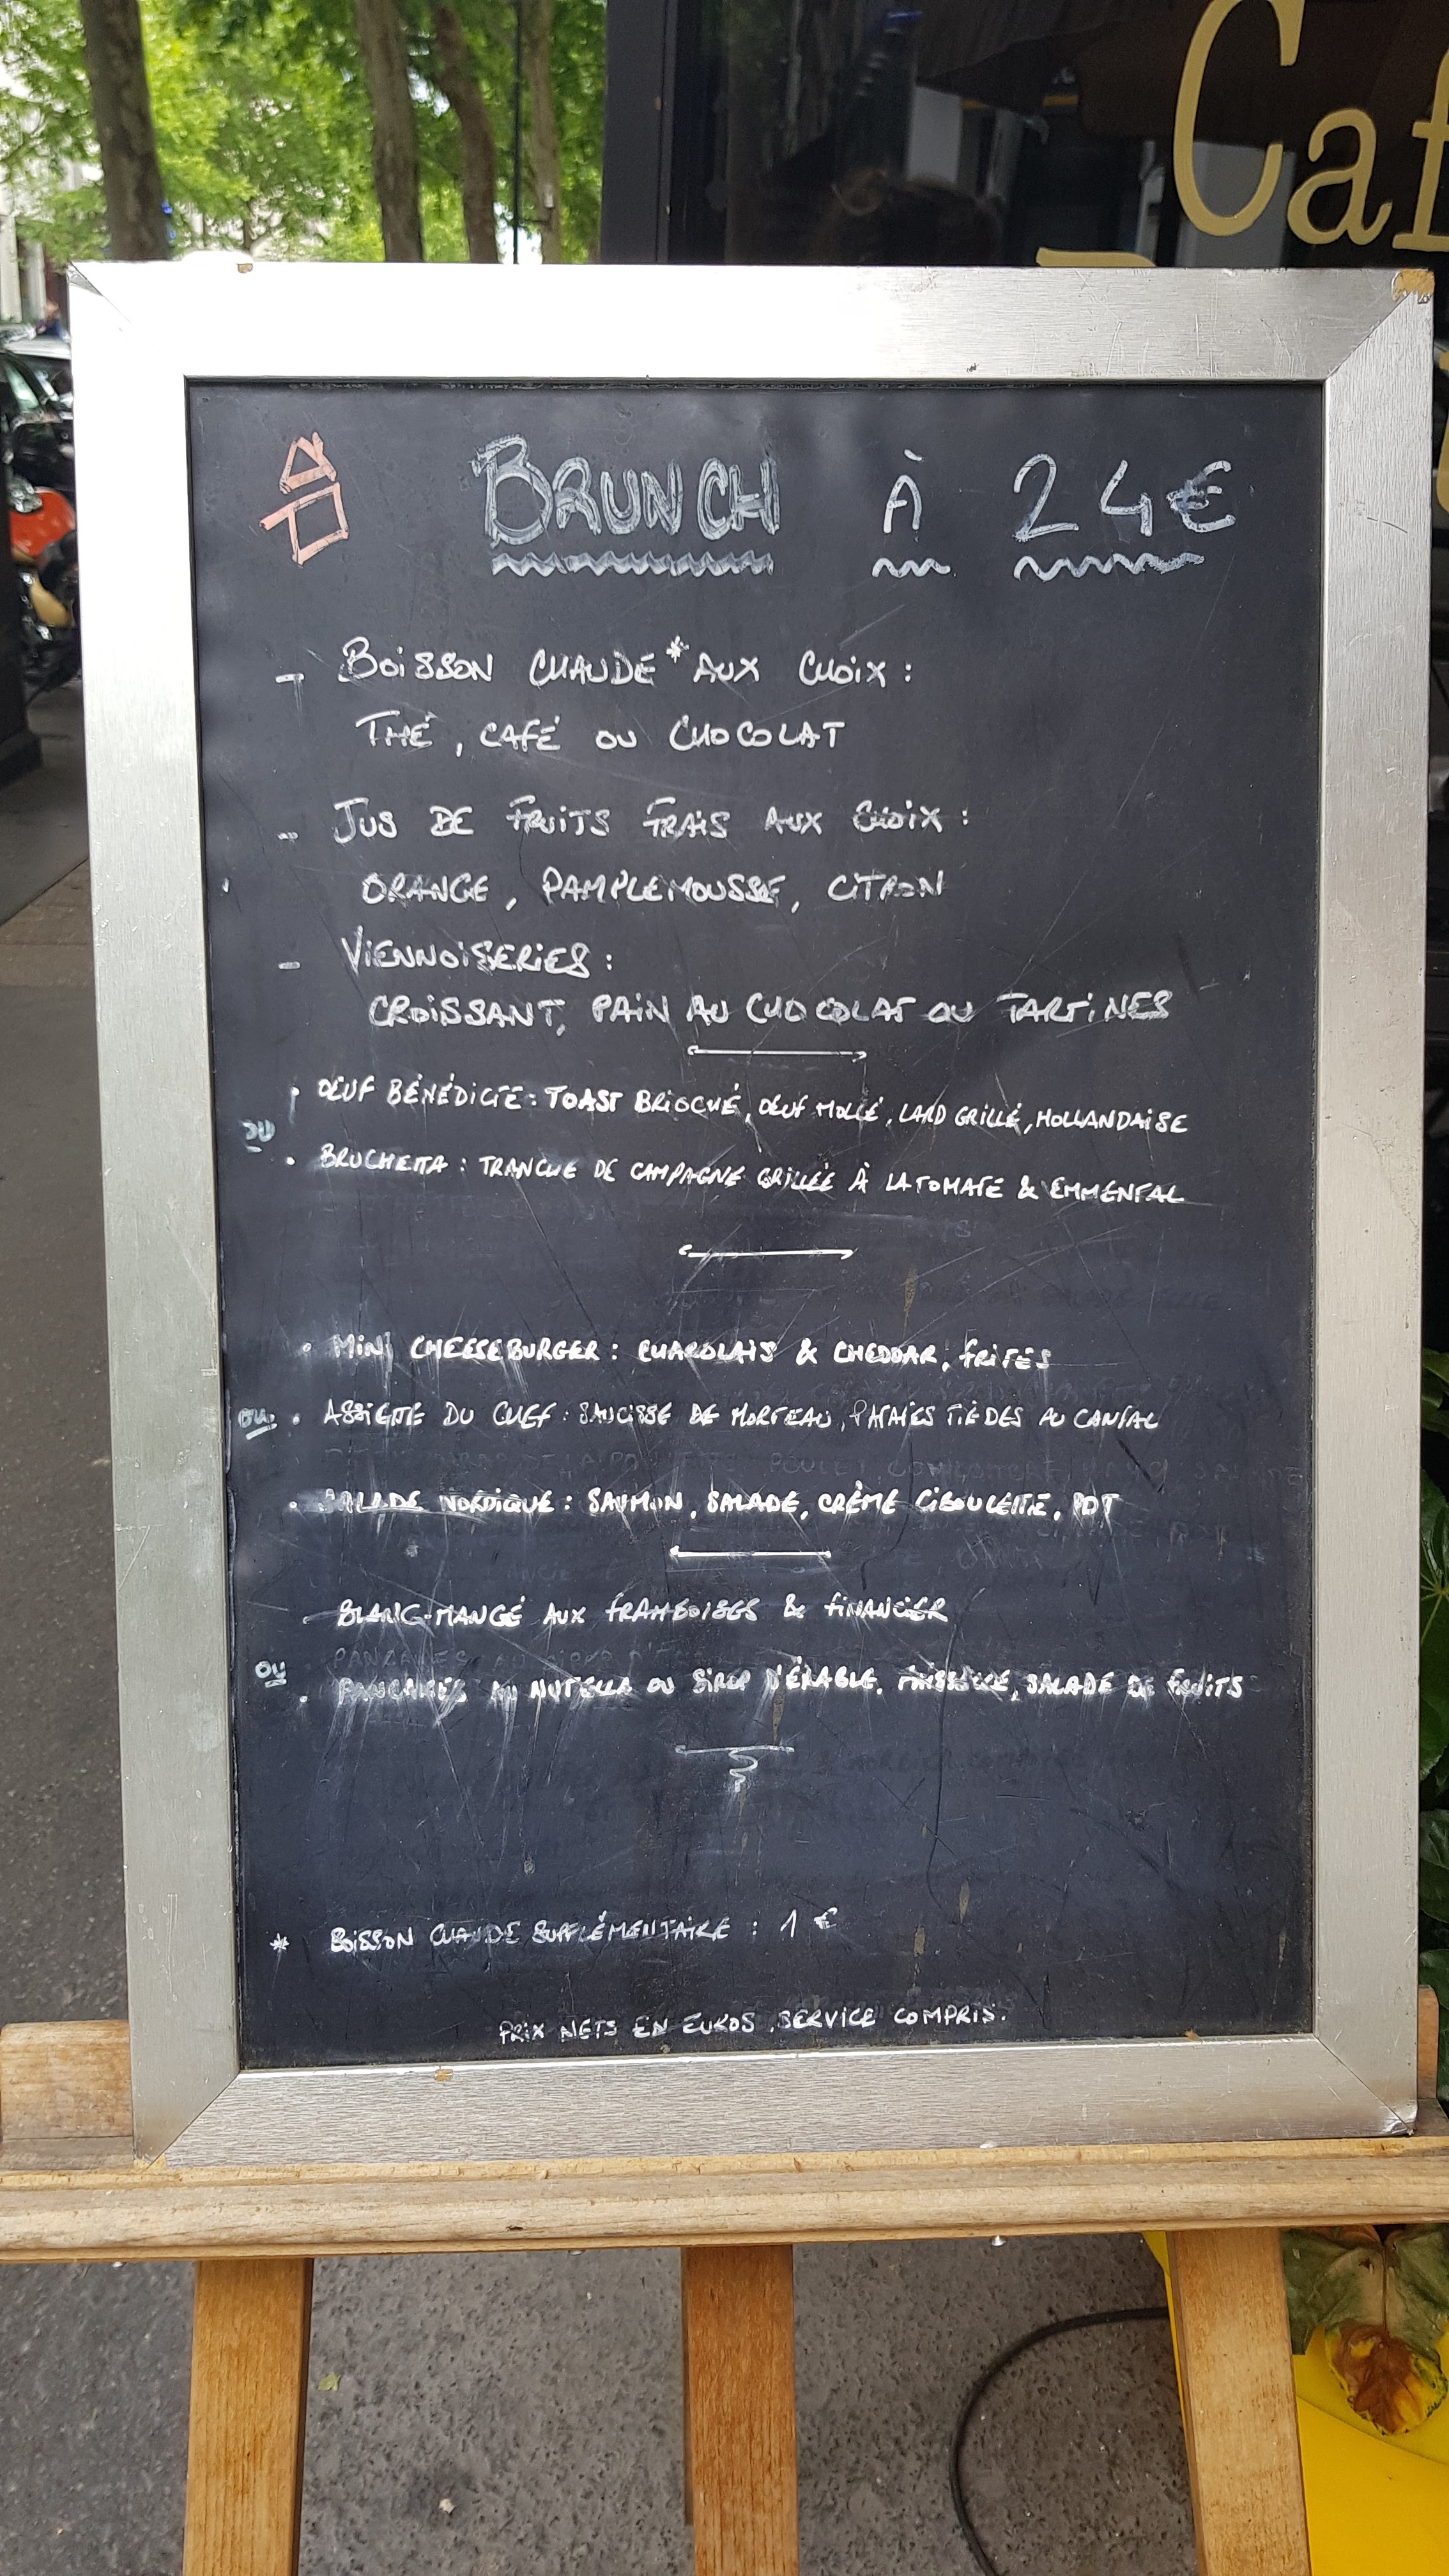 Caf
BRUNCH À 24€
- BOISSON CHAUDE* AUX CHOIX :
THÉ, CAFÉ OU CHOCOLAT
- JUS DE FRUITS FRAIS AUX CHOIX :
ORANGE, PAMPLEMOUSSE, CITRON
- VIENNOISERIES :
CROISSANT, PAIN AU CHOCOLAT OU TARTINES
• OEUF BÉNÉDICTE : TOAST BRIOCHÉ, OEUF MOLLÉ, LARD GRILLÉ, HOLLANDAISE
OU
• BRUCHETTA : TRANCHE DE CAMPAGNE GRILLÉE À LA TOMATE & EMMENTAL
• MINI CHEESEBURGER : CHAROLAIS & CHEDDAR, FRITES
OU • ASSIETTE DU CHEF : SAUCISSE DE MORTEAU, PATATES TIÈDES AU CANTAL
• SALADE NORDIQUE : SAUMON, SALADE, CRÈME CIBOULETTE, PDT
• BLANC-MANGÉ AUX FRAMBOISES & FINANCIER
OU
• PANCAKES AU NUTELLA OU SIROP D'ÉRABLE, SALADE DE FRUITS
* BOISSON CHAUDE SUPPLÉMENTAIRE : 1 €
PRIX NETS EN EUROS, SERVICE COMPRIS.